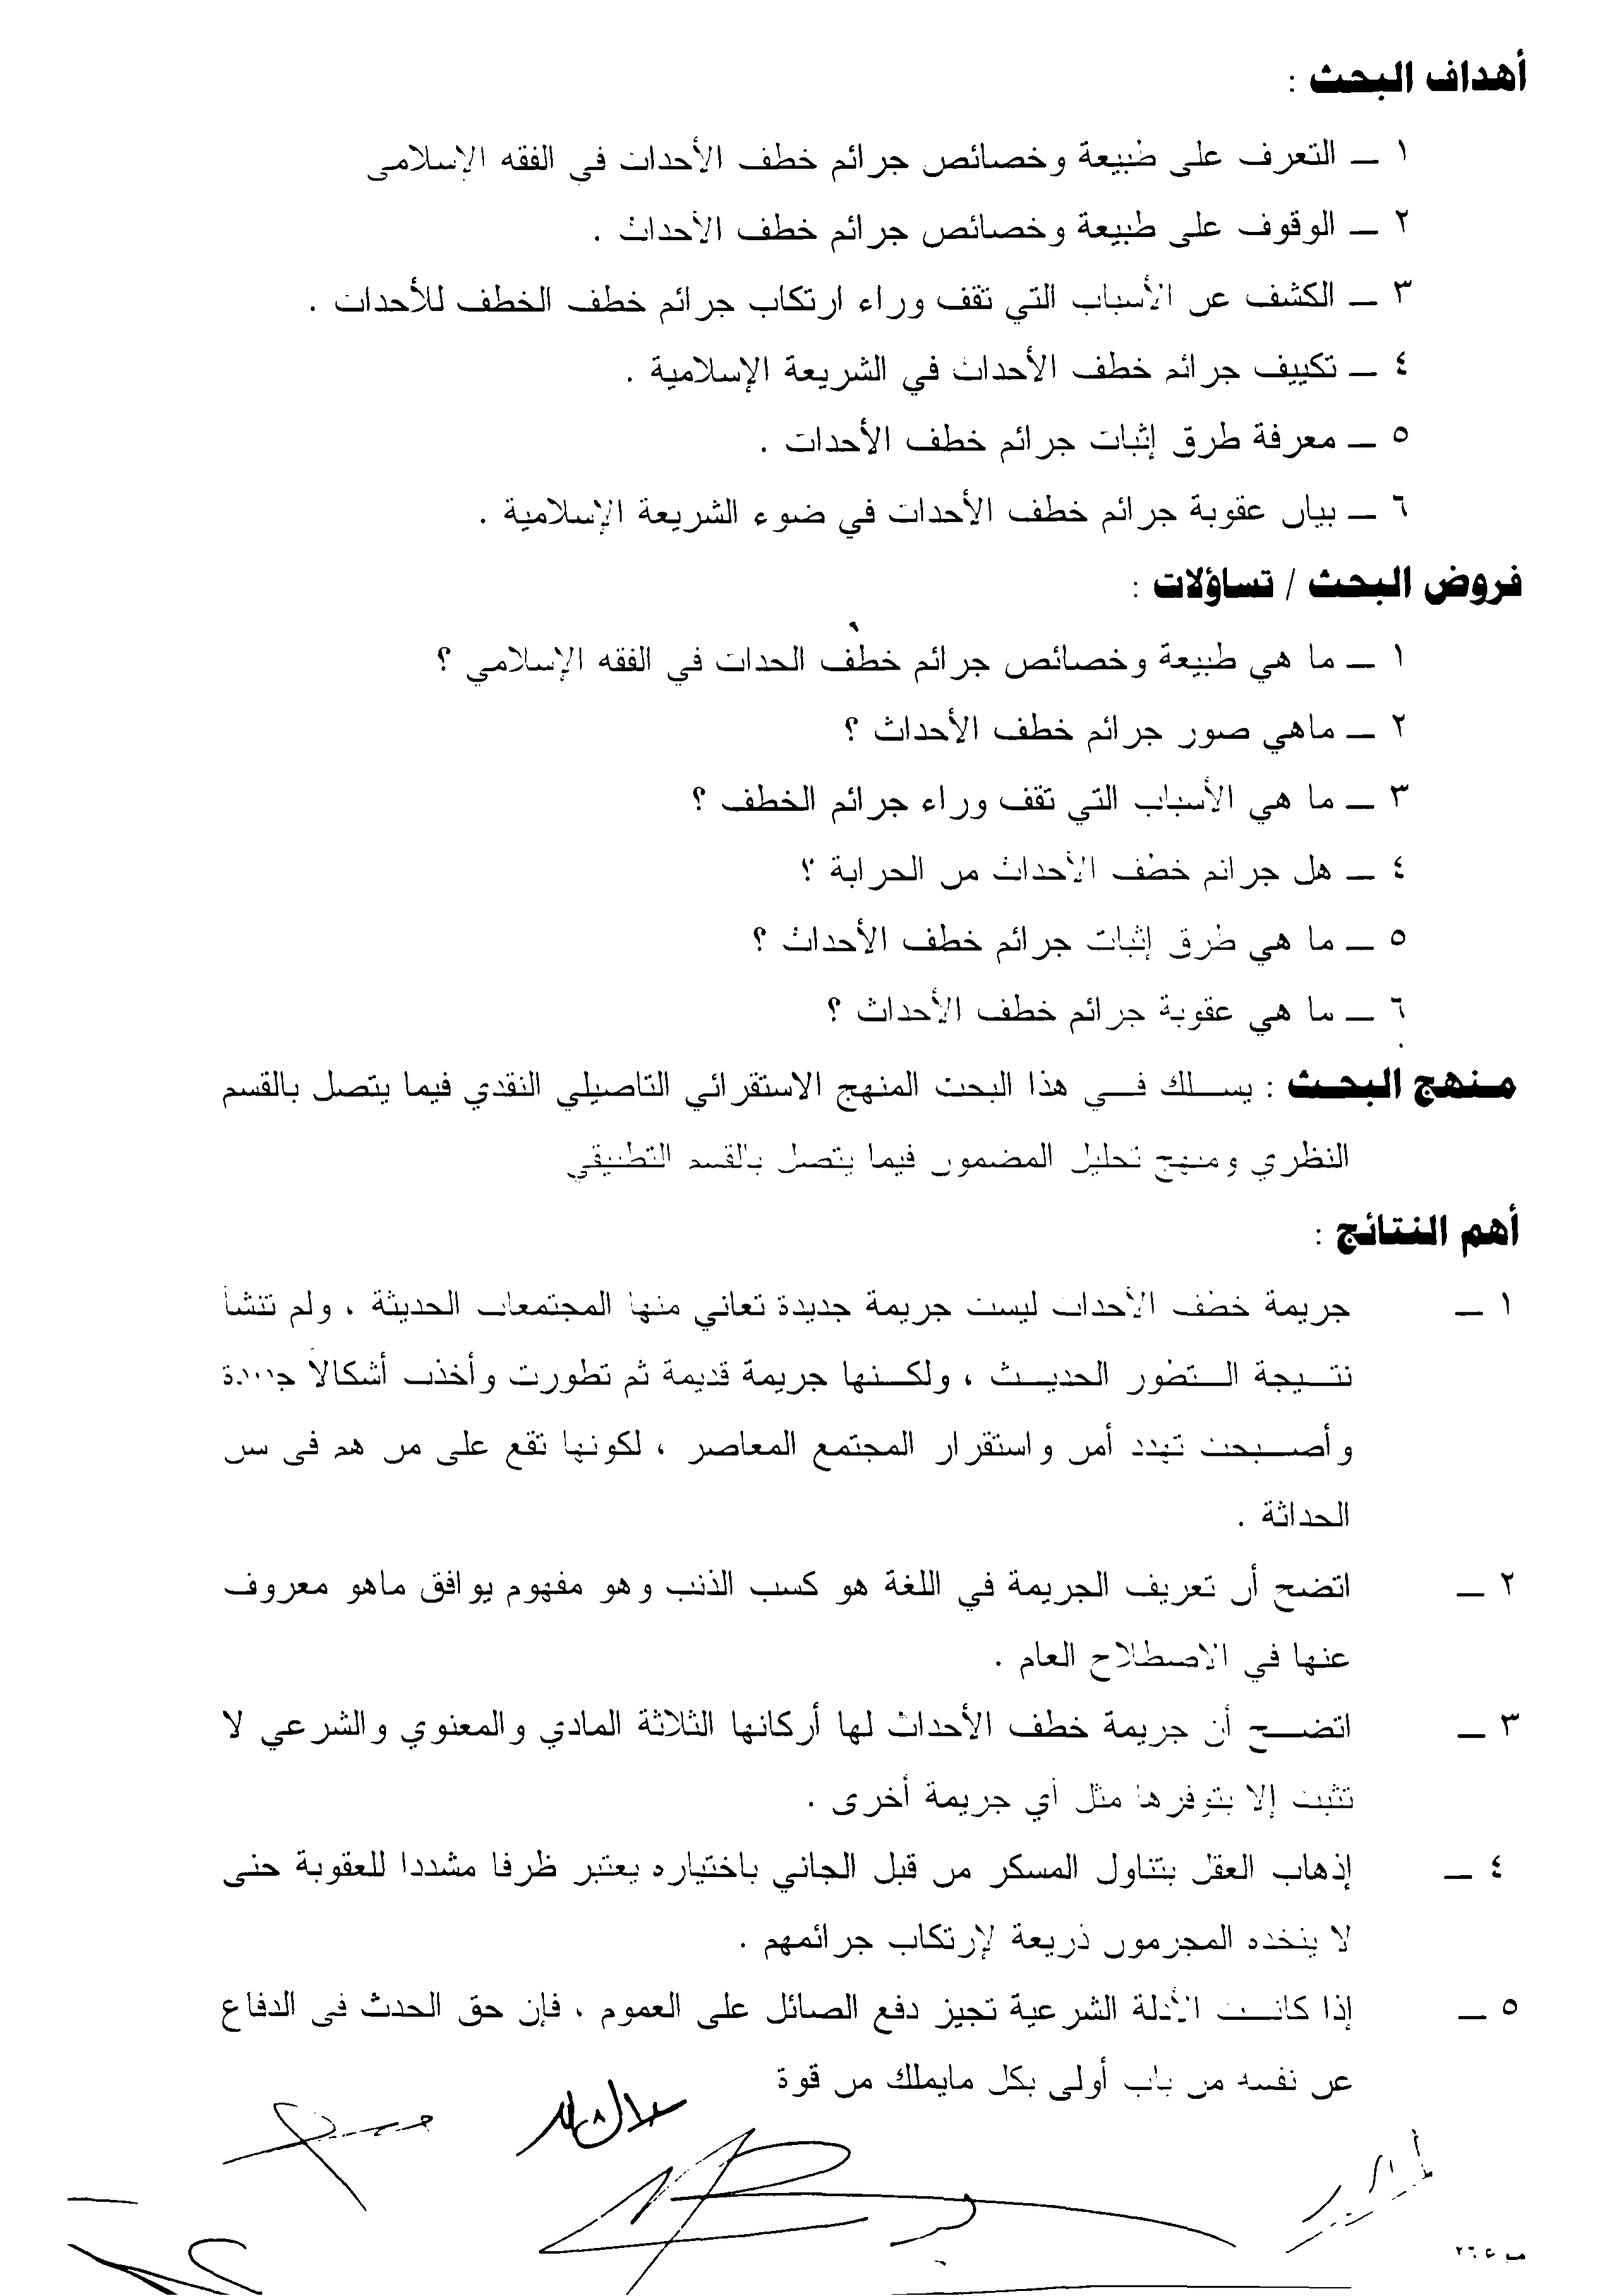 أهداف البحث :
١ ــ التعرف على طبيعة وخصائص جرائم خطف الأحداث في الفقه الإسلامي
٢ ــ الوقوف على طبيعة وخصائص جرائم خطف الأحداث .
٣ ــ الكشف عن الأسباب التي تقف وراء ارتكاب جرائم خطف الخطف للأحداث .
٤ ــ تكييف جرائم خطف الأحداث في الشريعة الإسلامية .
٥ ــ معرفة طرق إثبات جرائم خطف الأحداث .
٦ ــ بيان عقوبة جرائم خطف الأحداث في ضوء الشريعة الإسلامية .
فروض البحث / تساؤلات :
١ ــ ما هي طبيعة وخصائص جرائم خطف الحداث في الفقه الإسلامي ؟
٢ ــ ماهي صور جرائم خطف الأحداث ؟
٣ ــ ما هي الأسباب التي تقف وراء جرائم الخطف ؟
٤ ــ هل جرائم خطف الأحداث من الحرابة ؟
٥ ــ ما هي طرق إثبات جرائم خطف الأحداث ؟
٦ ــ ما هي عقوبة جرائم خطف الأحداث ؟
منهج البحث : يسلك في هذا البحث المنهج الاستقرائي التاصيلي النقدي فيما يتصل بالقسم
النظري ومنهج تحليل المضمون فيما يتصل بالقسم التطبيقي
أهم النتائج :
١ ــ جريمة خطف الأحداث ليست جريمة جديدة تعاني منها المجتمعات الحديثة ، ولم تنشأ
نتيجة التطور الحديث ، ولكنها جريمة قديمة ثم تطورت وأخذت أشكالا جديدة
وأصبحت تهدد أمن واستقرار المجتمع المعاصر ، لكونها تقع على من هم في سن
الحداثة .
٢ ــ اتضح أن تعريف الجريمة في اللغة هو كسب الذنب وهو مفهوم يوافق ماهو معروف
عنها في الاصطلاح العام .
٣ ــ اتضح أن جريمة خطف الأحداث لها أركانها الثلاثة المادي والمعنوي والشرعي لا
تثبت إلا بتوفرها مثل أي جريمة أخرى .
٤ ــ إذهاب العقل بتناول المسكر من قبل الجاني باختياره يعتبر ظرفا مشددا للعقوبة حتى
لا يتخذه المجرمون ذريعة لإرتكاب جرائمهم .
٥ ــ إذا كانت الأدلة الشرعية تجيز دفع الصائل على العموم ، فإن حق الحدث في الدفاع
عن نفسه من باب أولى بكل مايملك من قوة